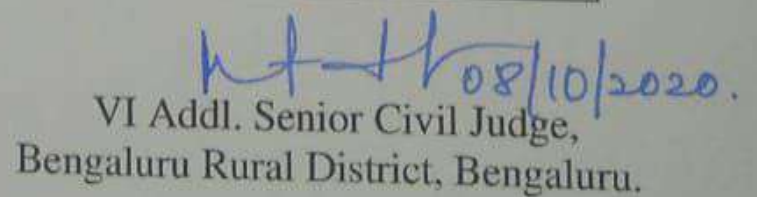 08/10/2020.
VI Addl. Senior Civil Judge,
Bengaluru Rural District, Bengaluru.